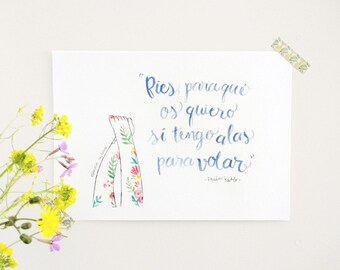 "Pies, para qué
os quiero
si tengo alas
para volar"